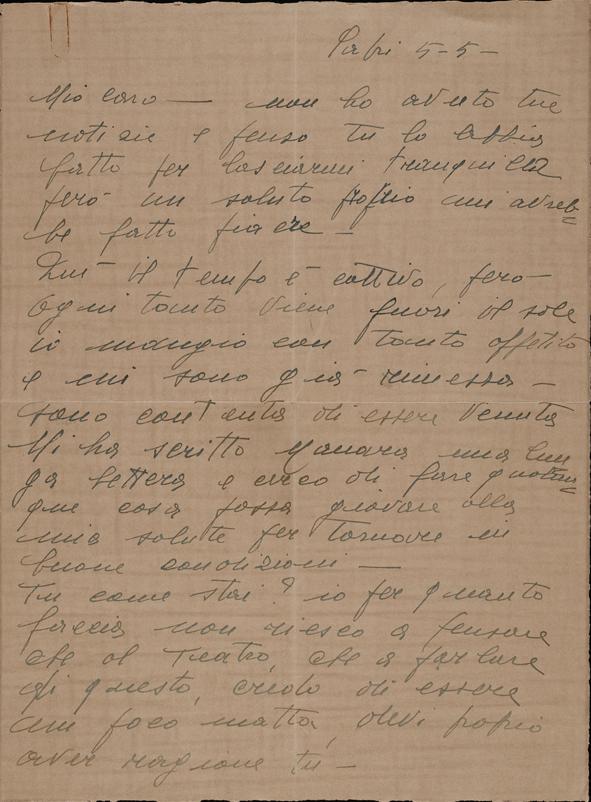 5-5-
Mio caro — non ho avuto tue
notizie e penso tu lo abbia
fatto per lasciarmi tranquilla
però un saluto proprio mi avreb=
be fatto piacere —
Qui il tempo è cattivo, però
ogni tanto viene fuori il sole
io mangio con tanto appetito
e mi sono già rimessa —
sono contenta di essere venuta
Mi ha scritto Manara una lun
ga lettera e cerco di fare qualun=
que cosa possa giovare alla
mia salute per tornare in
buone condizioni —
Tu come stai? io per quanto
faccia non riesco a pensare
che al Teatro, che a parlare
di questo, credo di essere
un poco matta, devi proprio
aver ragione tu —